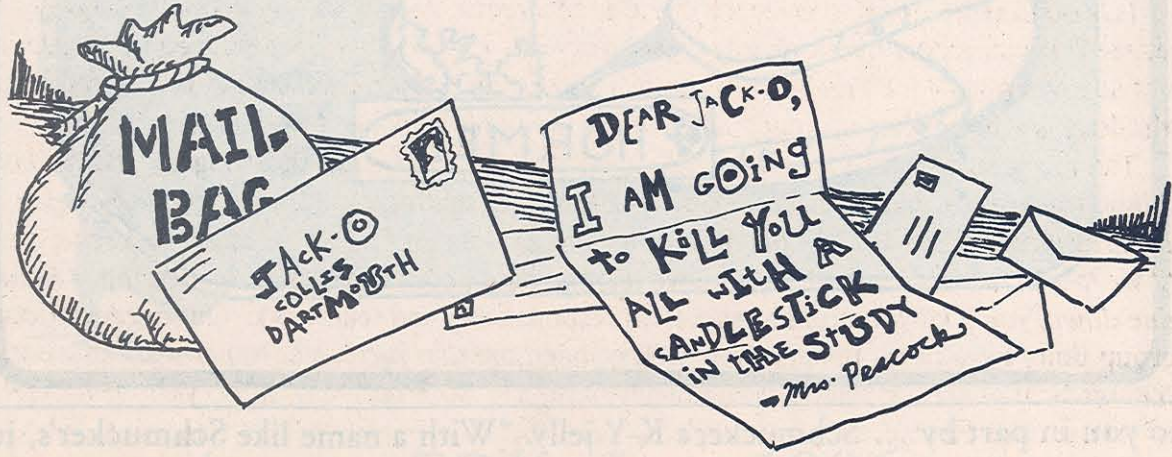 MAIL
BAG
JAcK-O
DEAR JACK-O,
I AM GOING
to KiLL YOU
ALL WITH A
cANDLESTiCK
iN tHE STUDY
- Mrs. Peacock